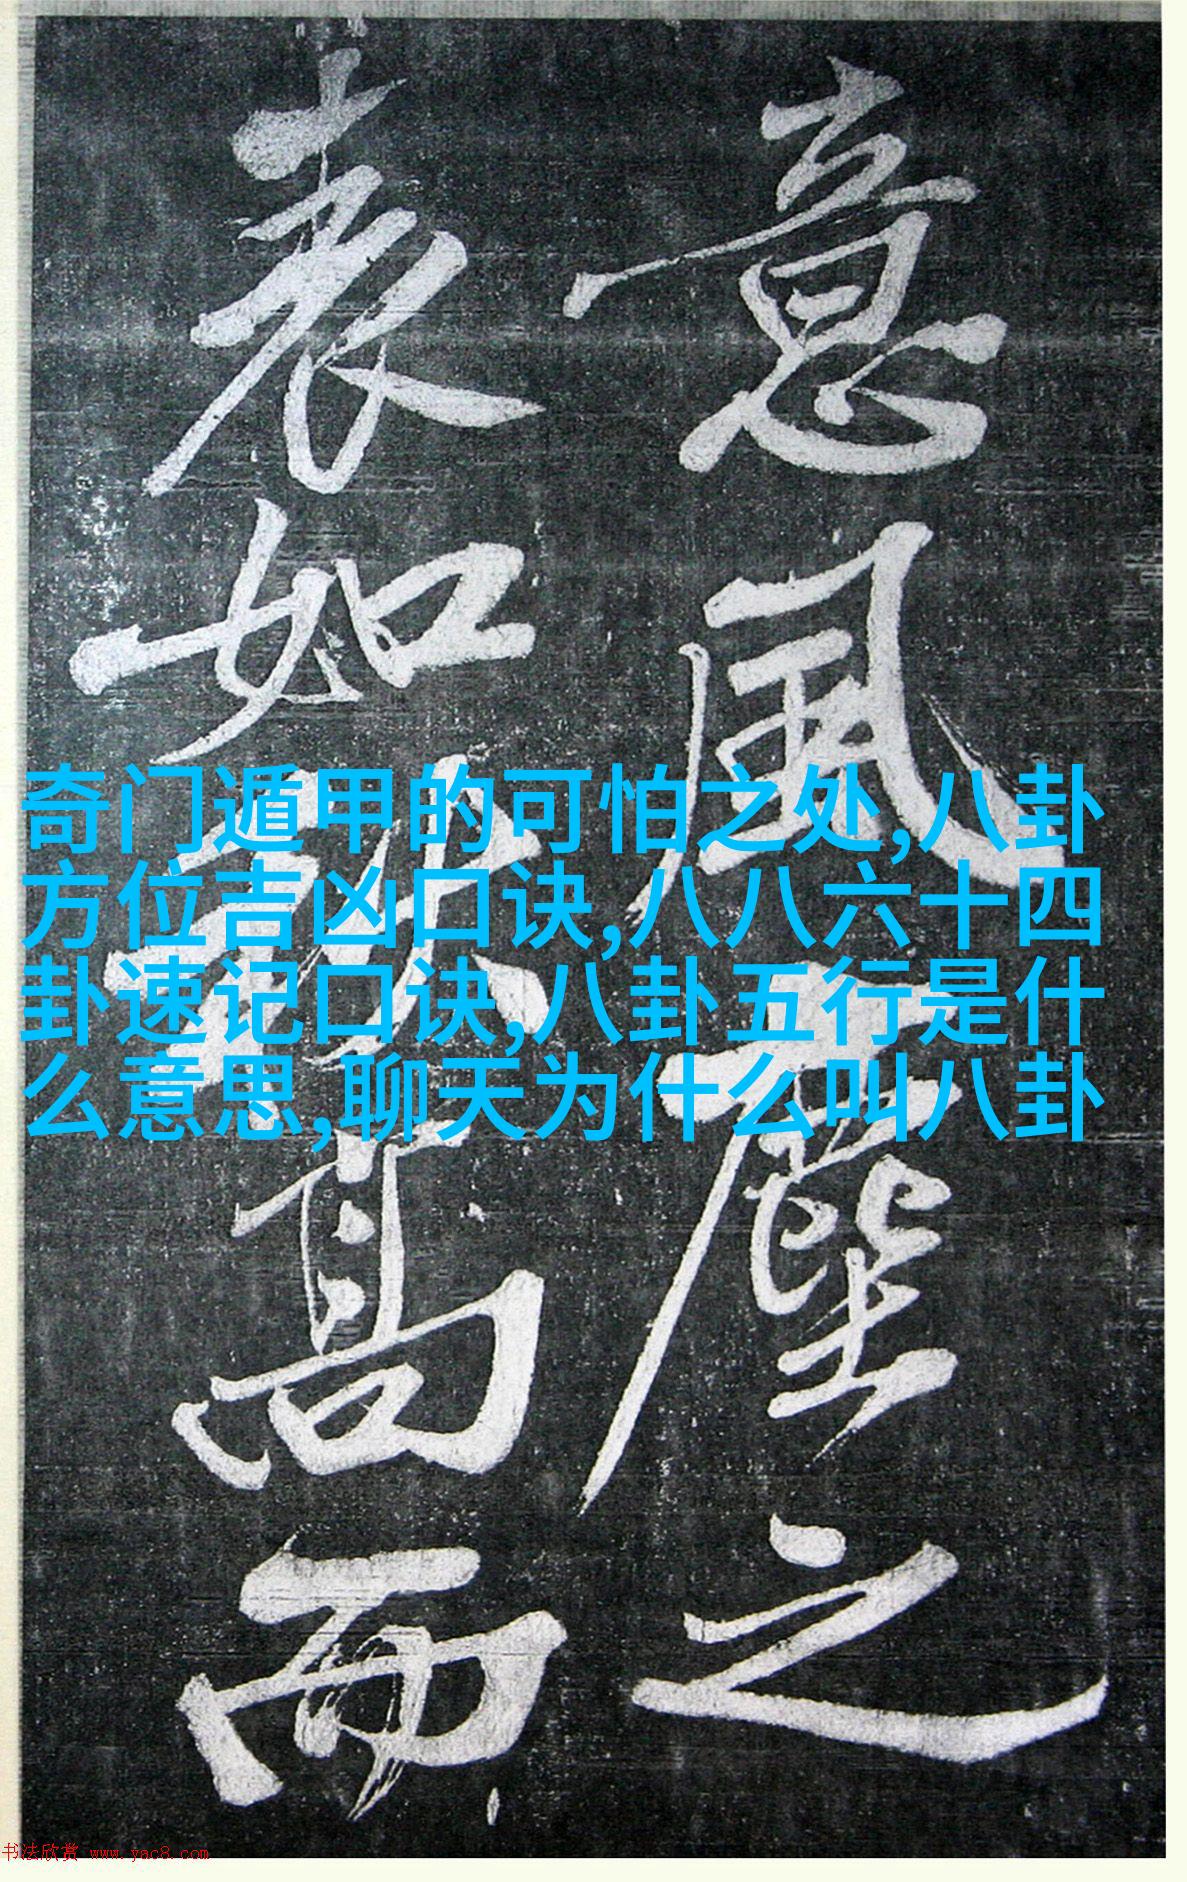 意風塵之
表如高而
奇门遁甲的可怕之处,八卦
方位吉凶口诀,八八六十四
卦速记口诀,八卦五行是什
么意思,聊天为什么叫八卦
书法欣赏 www.yac8.com